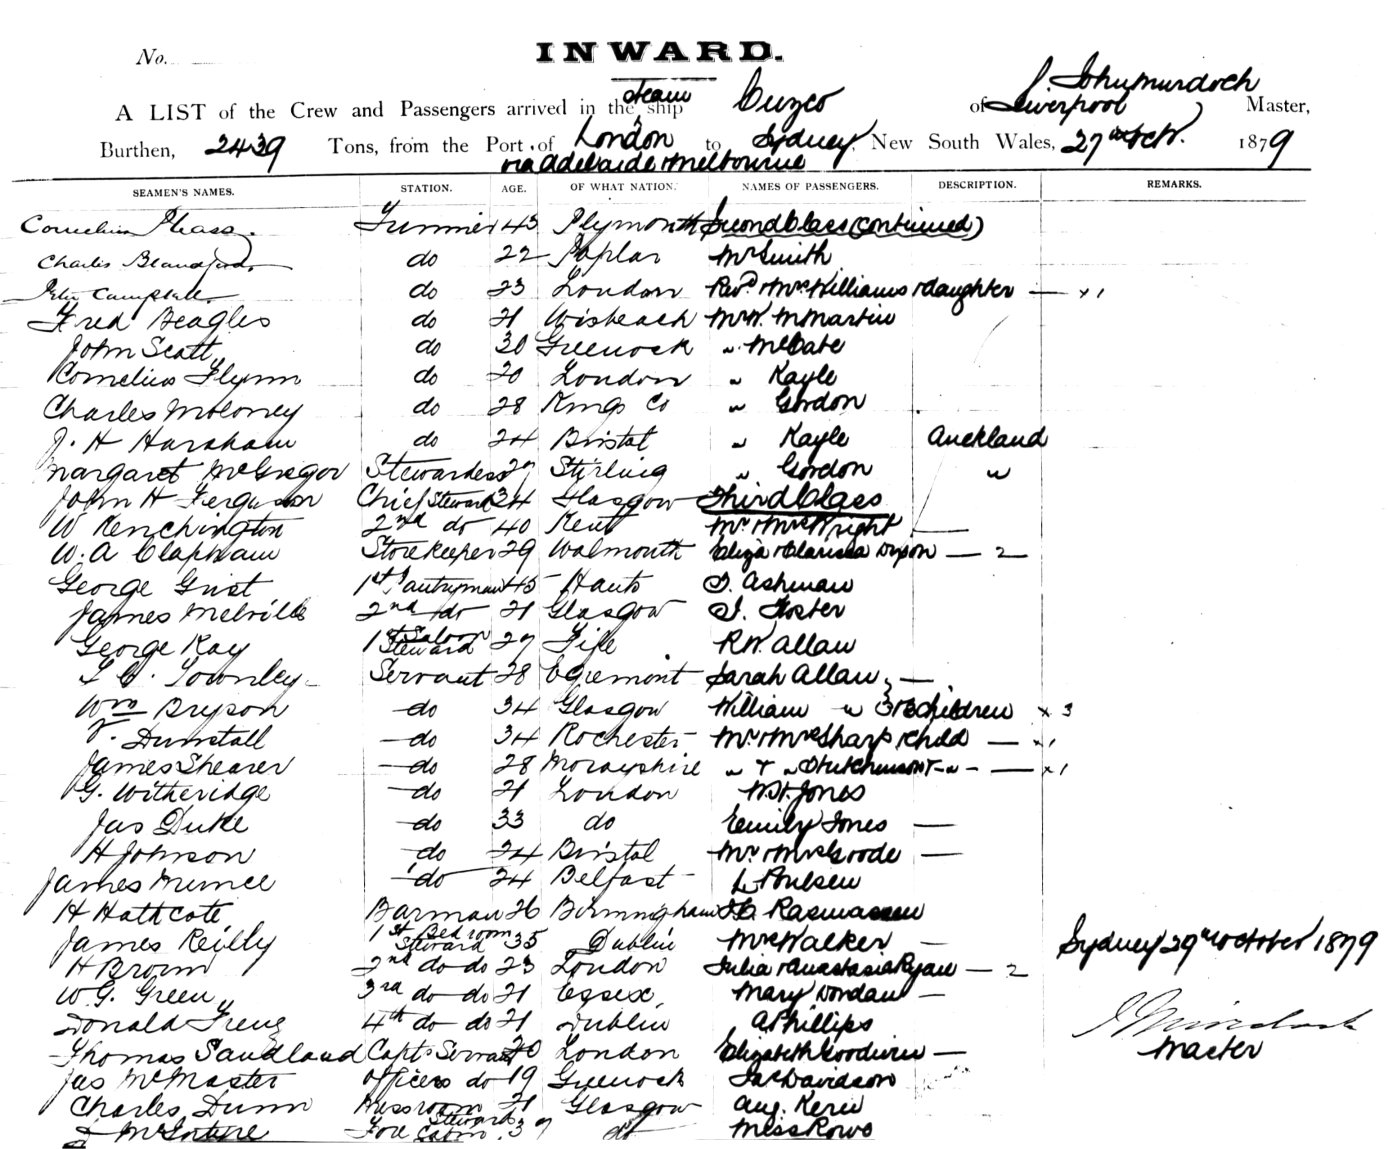 No.
INWARD.
A LIST of the Crew and Passengers arrived in the steam ship Cuzco of Liverpool J. John Murdoch Master,
Burthen, 2439 Tons, from the Port of London to Sydney, New South Wales, 27th Octr. 1879
via Adelaide & Melbourne
SEAMEN'S NAMES. STATION. AGE. OF WHAT NATION. NAMES OF PASSENGERS. DESCRIPTION. REMARKS.
Cornelius 43 Plymouth Second Class (continued)
Charles Blandford do 22 Poplar Mr Smith
Peter Campbell do 23 London Revd & Mrs Williams & daughter — x 1
Fred Beagles do 21 Wisbeach Mr W. McMartin
John Scott do 30 Greenock " McCabe
Cornelius Flynn do 20 London " Kayle
Charles Moloney do 28 Kings Co " Gordon
J. H Harsham do 24 Bristol " Kayle Auckland
Margaret McGregor Stewardess 27 Stirling " Gordon "
John H Ferguson Chief Steward 34 Glasgow Third Class
W Kenchington 2nd do 40 Kent Mr & Mrs Wright —
W. A Clapham Storekeeper 29 Walmouth Eliza & Clarissa Dyson — 2
George Grist 1st Pantryman 45 Hants T. Ashman
James Melville 2nd do 21 Glasgow J. Foster
George Kay 1st Saloon Steward 27 Fife R. W. Allan
Townley Servant 28 Egremont Sarah Allan, —
Wm Bryson do 34 Glasgow William " 3 Children x 3
Dunstall do 34 Rochester Mr & Mrs Sharp & child — x 1
James Shearer do 28 Morayshire " & " Hutchinson & " — x 1
G. Witheridge do 21 London Jones
Jas Duke do 33 do Emily Jones —
H Johnson do 24 Bristol Mr & Mrs Goode —
James Munce do 24 Belfast L Poulsen
H Hathcote Barman 26 Birmingham Rasmussen
James Reilly 1st Bedroom Steward 35 Dublin Mrs Walker —
H Brown 2nd do do 23 London Julia & Anastasia Ryan — 2
Sydney 29th October 1879
W. G. Green 3rd do do 21 Essex, Mary Dordan —
Donald 4th do do 21 Dublin A Phillips
J Murdoch
Master
Thomas Sandland Capts Servant 20 London Elizabeth Goodwin —
Jas McMaster Officers do 19 Greenock Jas Davidson
Charles Dunn Messroom Steward 21 Glasgow Aug. Kerin
J McIntire Fore Cabin 37 do Miss Rowe